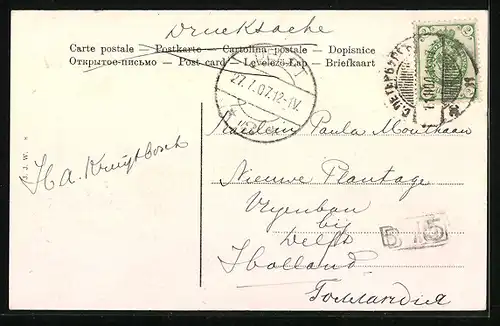 Drucksache
Carte postale — Postkarte — Cartolina postale — Dopisnice
Открытое-письмо — Post card — Levelező-Lap — Briefkaart
DELFT
27.7.07.12-1V.
С. ПЕТЕРБУРГ
2
Fräulein Paula Monthaan
Nieuwe Plantage
Vryenban
bij
Delft
Holland
Голландия
B 15
J. J. W.